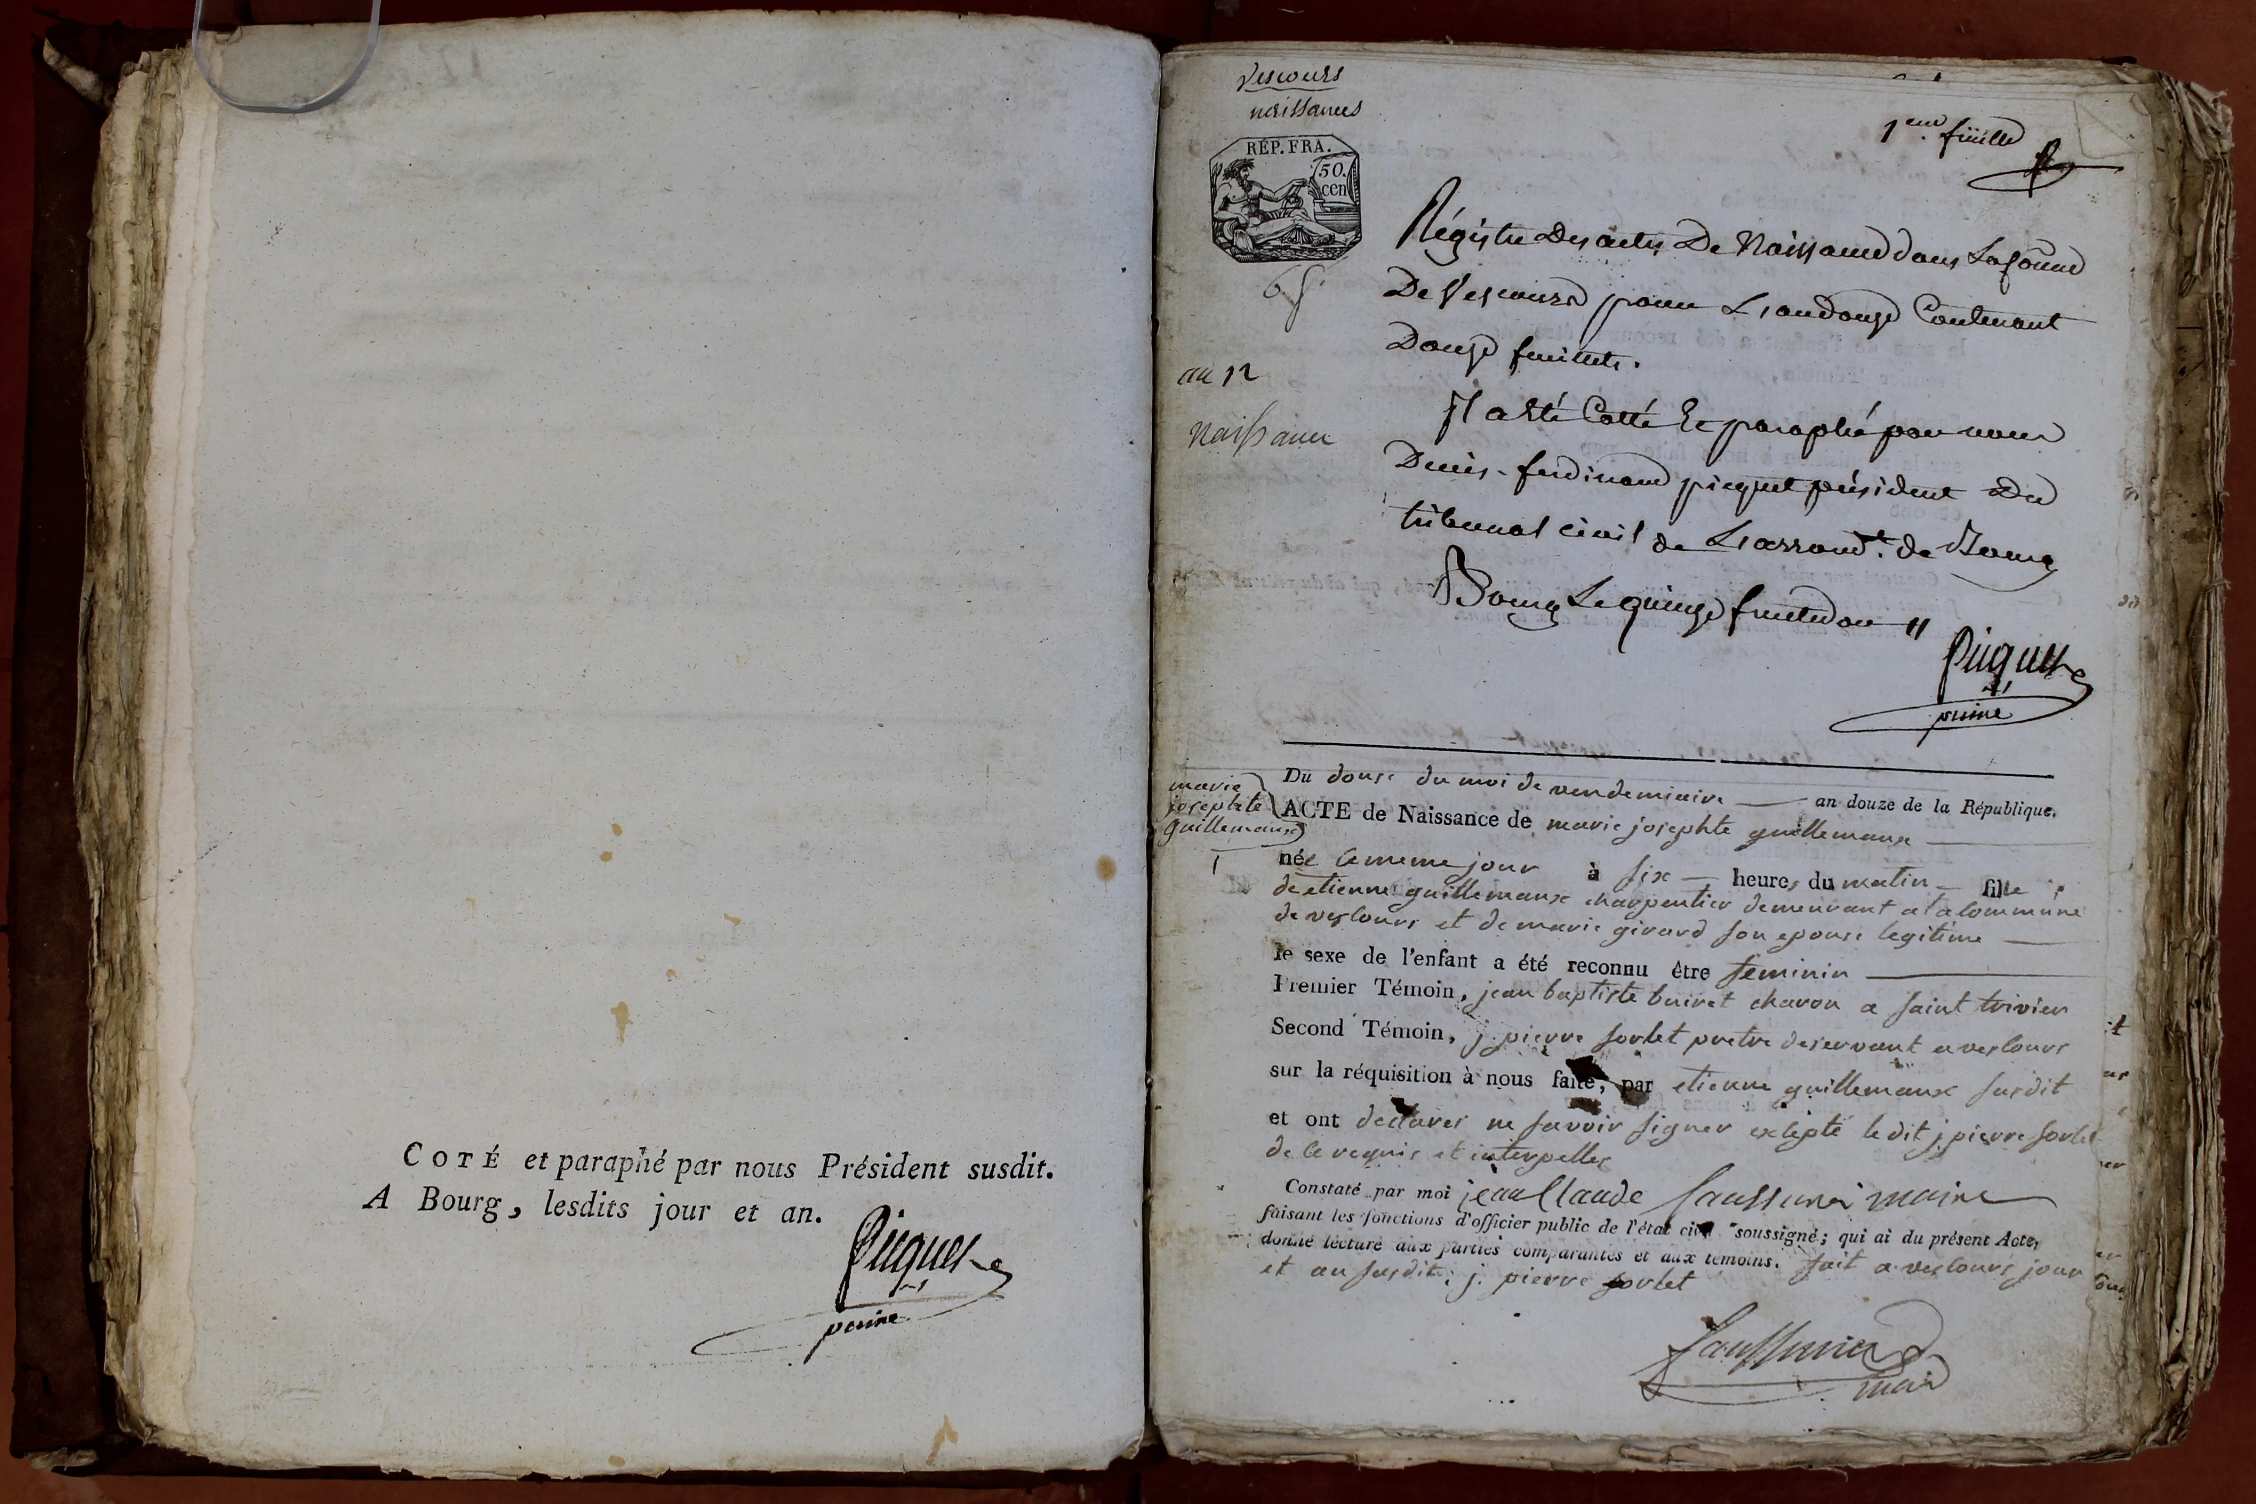 COTÉ et paraphé par nous Président susdit.
A Bourg, lesdits jour et an.
Picquet
Vescours
naissances
RÉP. FRA.
50.
cen
1ere feüille
Régistre des actes De Naissance dans La
De Vescours pour L'an Douze Contenant
Douze feuillets.
an 12
Naissance
Il a Eté Cotté Et paraphé par nous
Denis-ferdinand picquet président Du
tribunal civil de L'arrondt. de Bourg
Bourg Le quinze fructidor an 11
Picquet
marie
josephte
guillemaux
1
Du douse du moi de vendemiaire — an douze de la République.
ACTE de Naissance de marie josephte guillemaux
née le meme jour à six — heures du matin — fille
de etienne guillemaux charpentier demeurant a la commune
de vescours et de marie girard son epouse legitime
le sexe de l'enfant a été reconnu être feminin
Premier Témoin, jean baptiste buiret charon a saint trivier
Second Témoin, j. pierre sorlet pretre deservant a vescours
sur la réquisition à nous faite, par etienne guillemaux susdit
et ont declarer ne savoir signer exlepté le dit j pierre sorlet
de le requis et interpelles
Constaté par moi jean Claude saussurier maire
faisant les fonctions d'officier public de l'état civil soussigné; qui ai du présent Acte,
donné lecture aux parties comparantes et aux témoins. fait a vescours jour
et an susdit; j. pierre sorlet